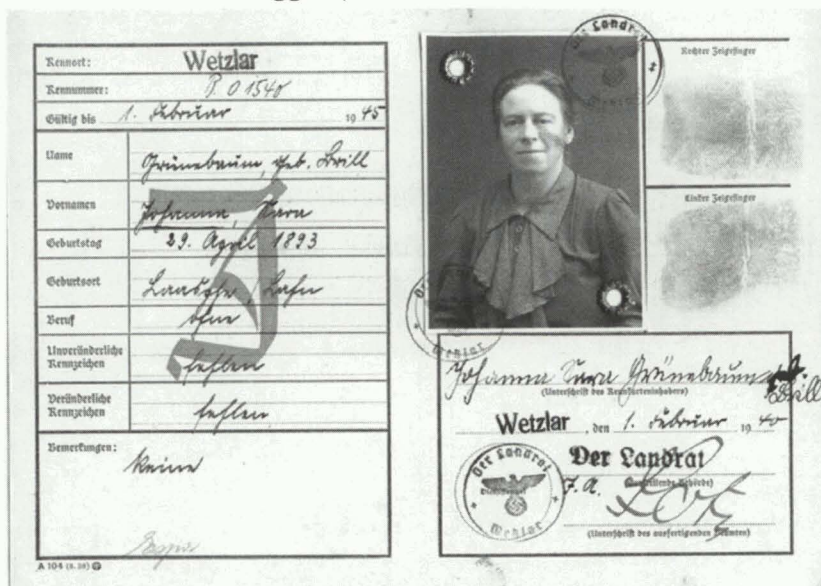 Kennort: Wetzlar
Kennummer: P. 01540
Gültig bis 1. Februar 1945
Name Grünebaum, geb. Brill
Vornamen Johanna, Sara
Geburtstag 29. April 1893
Geburtsort Laasphe / Lahn
Beruf ohne
Unveränderliche
Kennzeichen fehlen
Veränderliche
Kennzeichen fehlen
Bemerkungen:
Keine
J
A 104 (8. 38)
Der Landrat
Wetzlar
Rechter Zeigefinger
Linker Zeigefinger
Johanna Sara Grünebaum
Brill
(Unterschrift des Kennkarteninhabers)
Wetzlar, den 1. Februar 1940
Der Landrat
(Ausstellende Behörde)
J. A.
(Unterschrift des ausfertigenden Beamten)
Der Landrat
Wetzlar